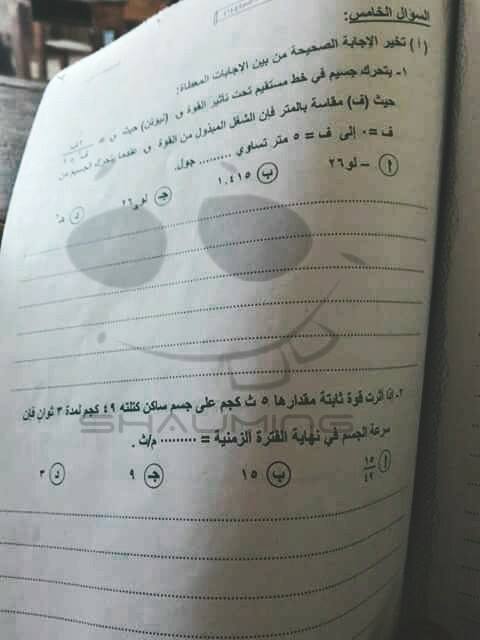 السؤال الخامس:
(أ) تخير الإجابة الصحيحة من بين الإجابات المعطاة:
١- يتحرك جسيم في خط مستقيم تحت تأثير القوة ق (نيوتن) حيث ق =
حيث (ف) مقاسة بالمتر فإن الشغل المبذول من القوة ق عندما يتحرك الجسيم من
ف = ٠ إلى ف = ٥ متر تساوي ......... جول.
أ - لو ٢٦ ب ١.٤١٥ جـ لو ٢٦ د
٢- إذا أثرت قوة ثابتة مقدارها ٥ ث كجم على جسم ساكن كتلته ٤٩ كجم لمدة ٣ ثوانٍ فإن
SHAUMING
سرعة الجسم في نهاية الفترة الزمنية = ......... م/ث .
أ ١٥/٤٩ ب ١٥ جـ ٩ د ٣